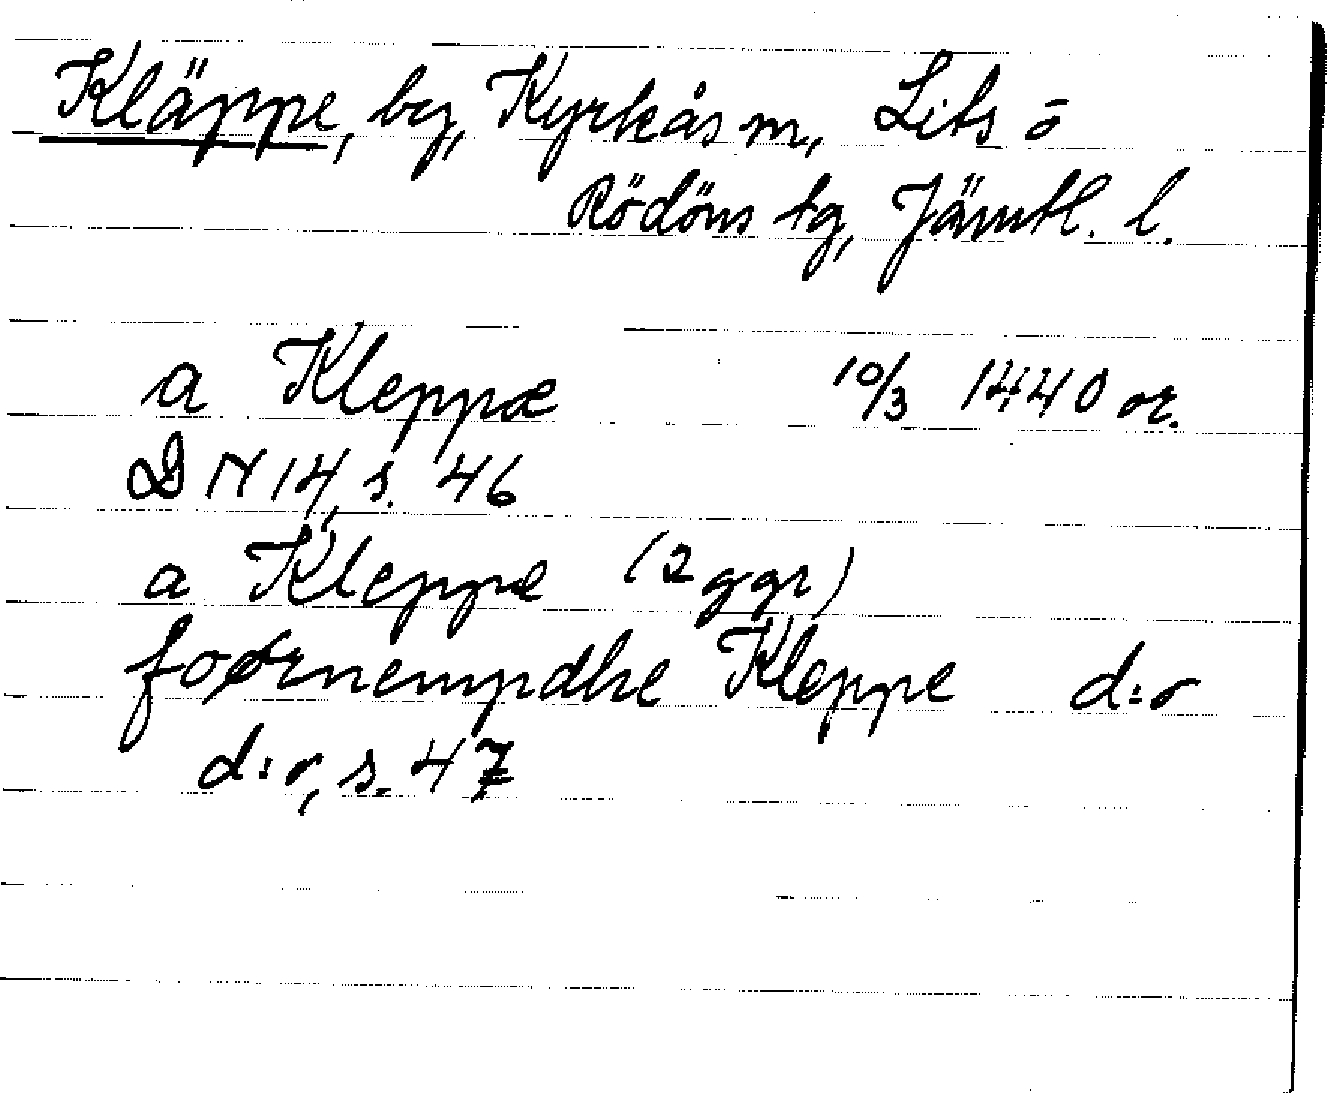 Kläppe, by, Kyrkås sn, Lits o
Rödöns tg, Jämtl. l.
a Kleppæ 10/3 1440 or.
DN 14, s. 46
a Kleppe (2 ggr)
foørnempdhe Kleppe d:o
d:o, s. 47